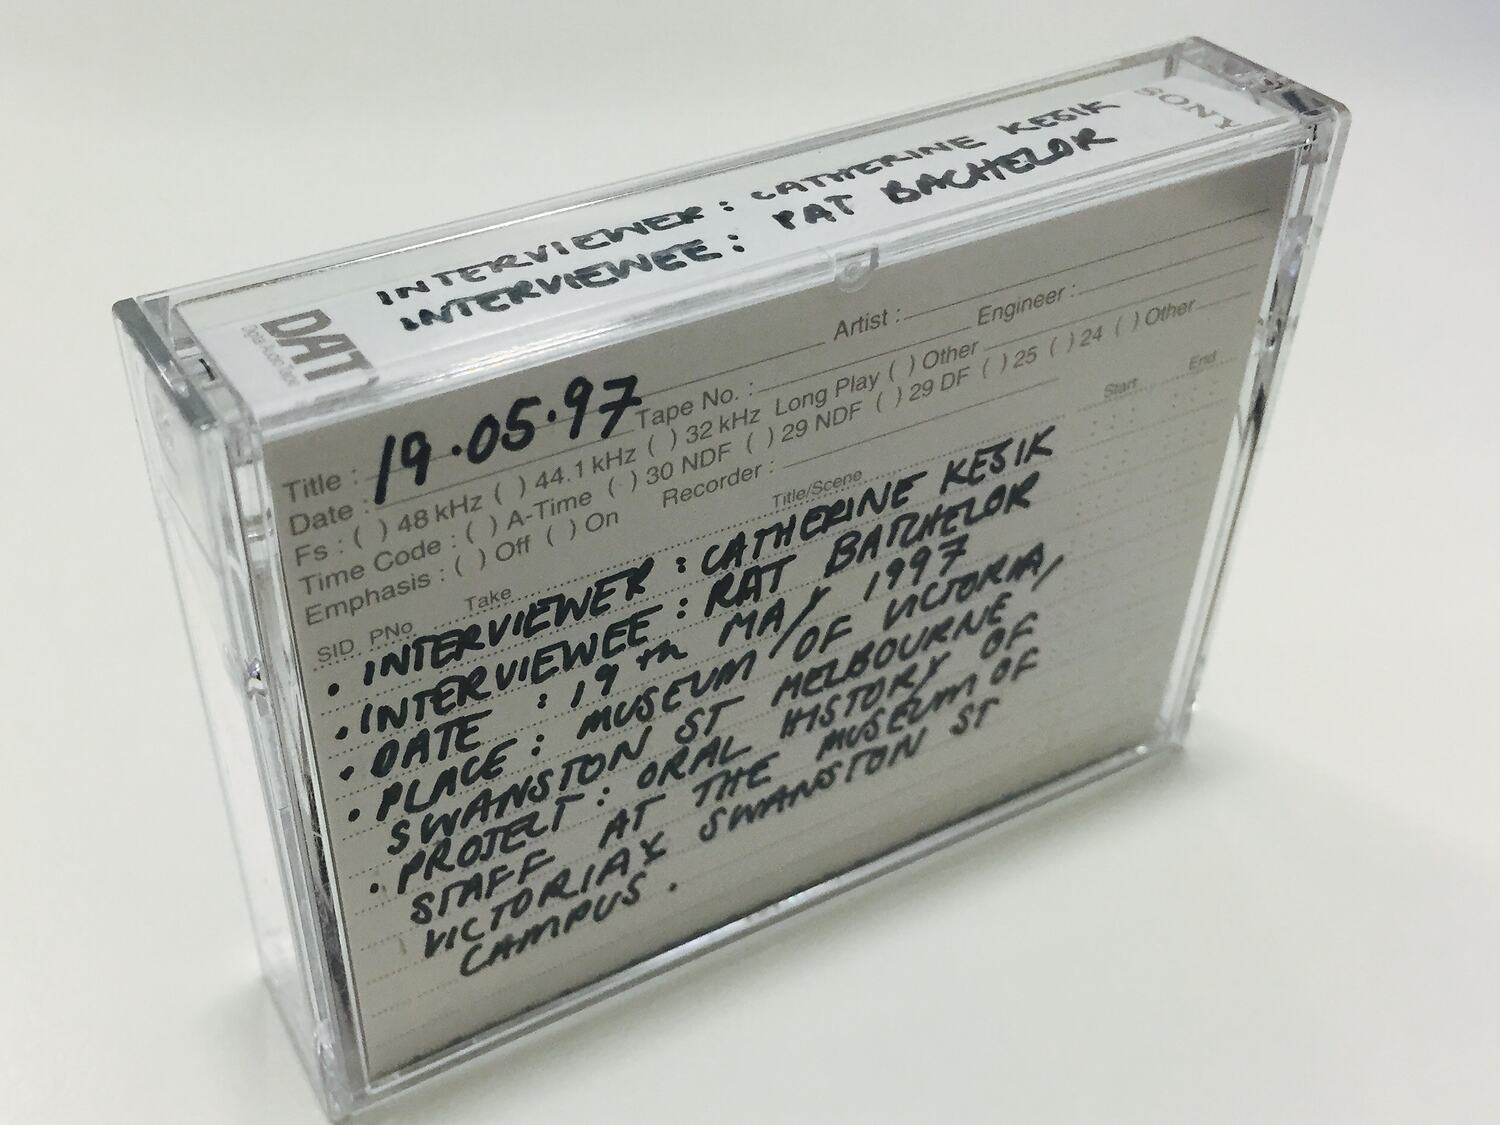 INTERVIEWER: CATHERINE KESIK
INTERVIEWEE: PAT BACHELOR
SONY
DAT
Digital Audio Tape
Artist :
Title :
19.05.97
Tape No. :
Engineer :
Date :
Fs : ( ) 48 kHz ( ) 44.1 kHz ( ) 32 kHz Long Play ( ) Other
Time Code : ( ) A-Time ( ) 30 NDF ( ) 29 NDF ( ) 29 DF ( ) 25 ( ) 24 ( ) Other
Emphasis : ( ) Off ( ) On Recorder :
SID PNo Take Title/Scene Start End
• INTERVIEWER : CATHERINE KESIK
• INTERVIEWEE : PAT BATCHELOR
• DATE : 19th MAY 1997
• PLACE : MUSEUM OF VICTORIA,
SWANSTON ST MELBOURNE
• PROJECT : ORAL HISTORY OF
STAFF AT THE MUSEUM OF
VICTORIA SWANSTON ST
CAMPUS.